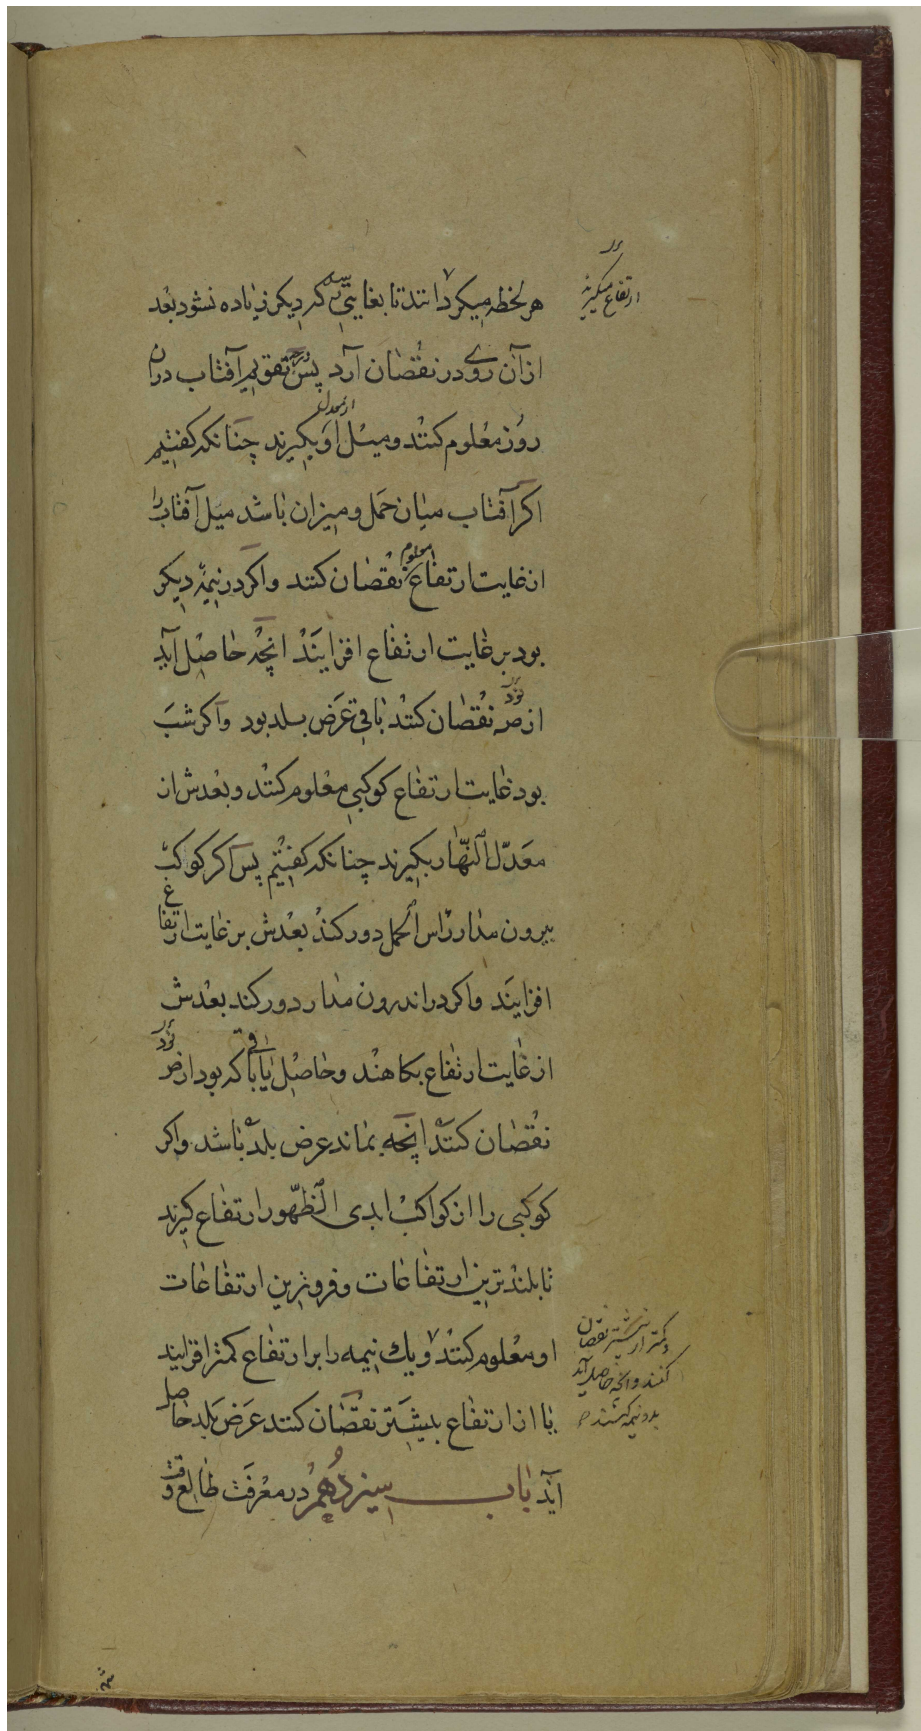 هر لحظه میکردانند تا بغایتی رسد که دیکر زیاده نشود بعد
ارتفاع میکیرند
از آن روی در نقصان آرد پس درجه تقویم آفتاب در آن
روز معلوم کنند و میل او از معدل بکیرند چنانکه کفتیم
اکر آفتاب میان حمل و میزان باشد میل آفتاب را
از غایت ارتفاع معلوم نقصان کنند و اکر در نیمهٔ دیکر
بود بر غایت ارتفاع افزایند انچه حاصل آید
از صه نود نقصان کنند باقی عرض بلد بود و اکر شب
بود غایت ارتفاع کوکبی معلوم کنند و بعدش از
معدّل النّهار بکیرند چنانکه کفتیم پس اکر کوکب
بیرون مدار راس الحمل دور کند بعدش بر غایت ارتفاع
افزایند و اکر در اندرون مدار دور کند بعدش
از غایت ارتفاع بکاهند و حاصل یا باقی که بود از ص نود
نقصان کنند انچه بماند عرض بلد باشد و اکر
کوکبی را از کواکب ابدی الظّهور ارتفاع کیرند
تا بلندترین ارتفاعات و فروترین ارتفاعات
او معلوم کنند و یك نیمه را بر ارتفاع کمتر افزایند
کمتر از بیشتر نقصان
کنند و انچه حاصل آید
بدو نیمه کنند
یا از ارتفاع بیشتر نقصان کنند عرض بلد حاصل
آید باب سیزدهم در معرفت طالع وقت